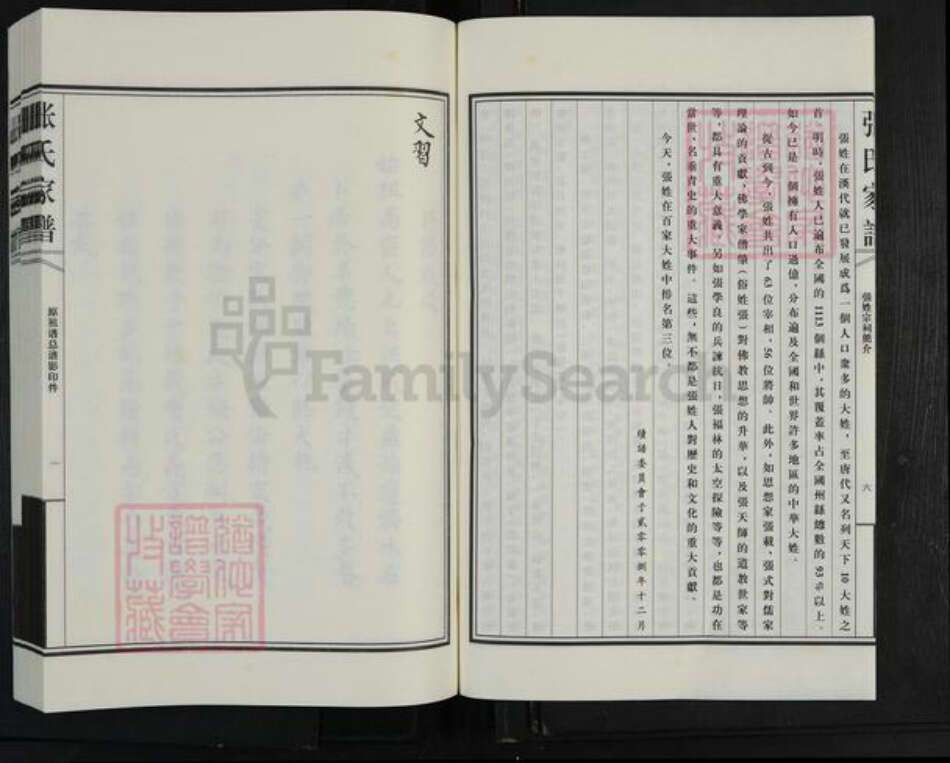 張姓宗祠簡介
六
張姓在漢代就已發展成爲一個人口衆多的大姓，至唐代又名列天下10大姓之
首。明時，張姓人已遍布全國的1115個縣中，其覆蓋率占全國州縣總數的93%以上。
如今已是一個擁有人口過億，分布遍及全國和世界許多地區的中華大姓。
從古到今，張姓共出了63位宰相，56位將帥。此外，如思想家張載，張式對儒家
理論的貢獻，佛學家僧肇（俗姓張）對佛教思想的升華，以及張天師的道教世家等
等，都具有重大意義。另如張學良的兵諫抗日，張福林的太空探險等等，也都是功在
當世，名垂青史的重大事件。這些，無不都是張姓人對歷史和文化的重大貢獻。
今天，張姓在百家大姓中排名第三位。
續譜委員會于貳零零捌年十二月
文習
張氏家譜
原祖譜總譜影印件
一
猶他家
譜學會
收藏
FamilySearch